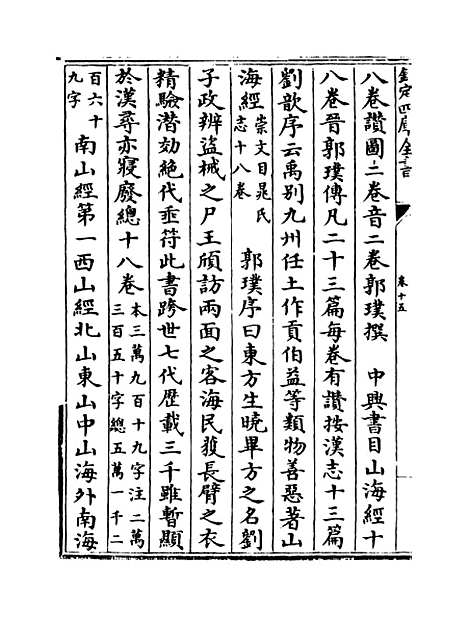 欽定四庫全書
卷十五
八卷讚圖二卷音二卷郭璞撰　中興書目山海經十
八卷晉郭璞傳凡二十三篇每卷有讚按漢志十三篇
劉歆序云禹別九州任土作貢伯益等類物善惡著山
海經崇文目晁氏志十八卷　郭璞序曰東方生曉畢方之名劉
子政辨盜械之尸王頎訪兩面之客海民獲長臂之衣
精驗潛効絶代乖符此書跨世七代歴載三千雖暫顯
於漢尋亦寢廢總十八卷本三萬九百十九字注二萬三百五十字總五萬一千二
百六十九字　南山經第一西山經北山東山中山海外南海